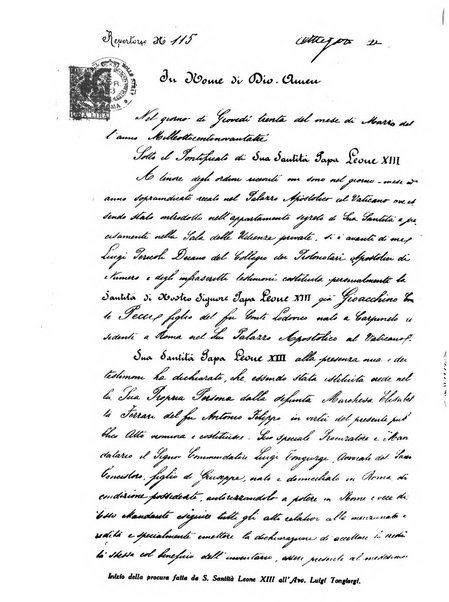 Repertorio No 115
In Nome di Dio. Amen
Nel giorno di Giovedì trenta del mese di Marzo del
l'anno Milleottocentonovantatre
Sotto il Pontificato di Sua Santità Papa Leone XIII
A tenore degli ordini ricevuti mi sono nel giorno - mese ed
anno sopraindicato recato nel Palazzo Apostolico al Vaticano ove es
sendo stato introdotto nell'appartamento segreto di Sua Santità e pre
cisamente nella Sala delle Udienze private, si è avanti di me
Luigi Pericoli Decano del Collegio dei Protonotari Apostolici di
Numero e degli infrascritti testimoni costituita personalmente la
Santità di Nostro Signore Papa Leone XIII già Gioacchino Con
te Pecci figlio del fu Conte Lodovico nato a Carpineto re
sidente a Roma nel Suo Palazzo Apostolico al Vaticano
Sua Santità Papa Leone XIII alla presenza mia e dei
testimoni ha dichiarato, che essendo stata istituita erede nel
la Sua Propria Persona dalla defunta Marchesa
de Ferrari del fu Antonio Filippo in virtù del presente pub
blico Atto nomina e costituisce Suo speciale Procuratore e Man
datario il Signor Commendatore Luigi Tongiorgi, Avvocato del Sacro
Concistoro, figlio di Giuseppe, nato e domiciliato in Roma di
condizione possidente, autorizzandolo a potere in Nome e vece di
Esso Mandante eseguire tutti gli atti relativi alla menzionata e
redità e specialmente emettere la dichiarazione di accettare la eredità
stessa col beneficio dell'inventario, essere presente al medesimo
Inizio della procura fatta da S. Santità Leone XIII all'Avv. Luigi Tongiorgi.